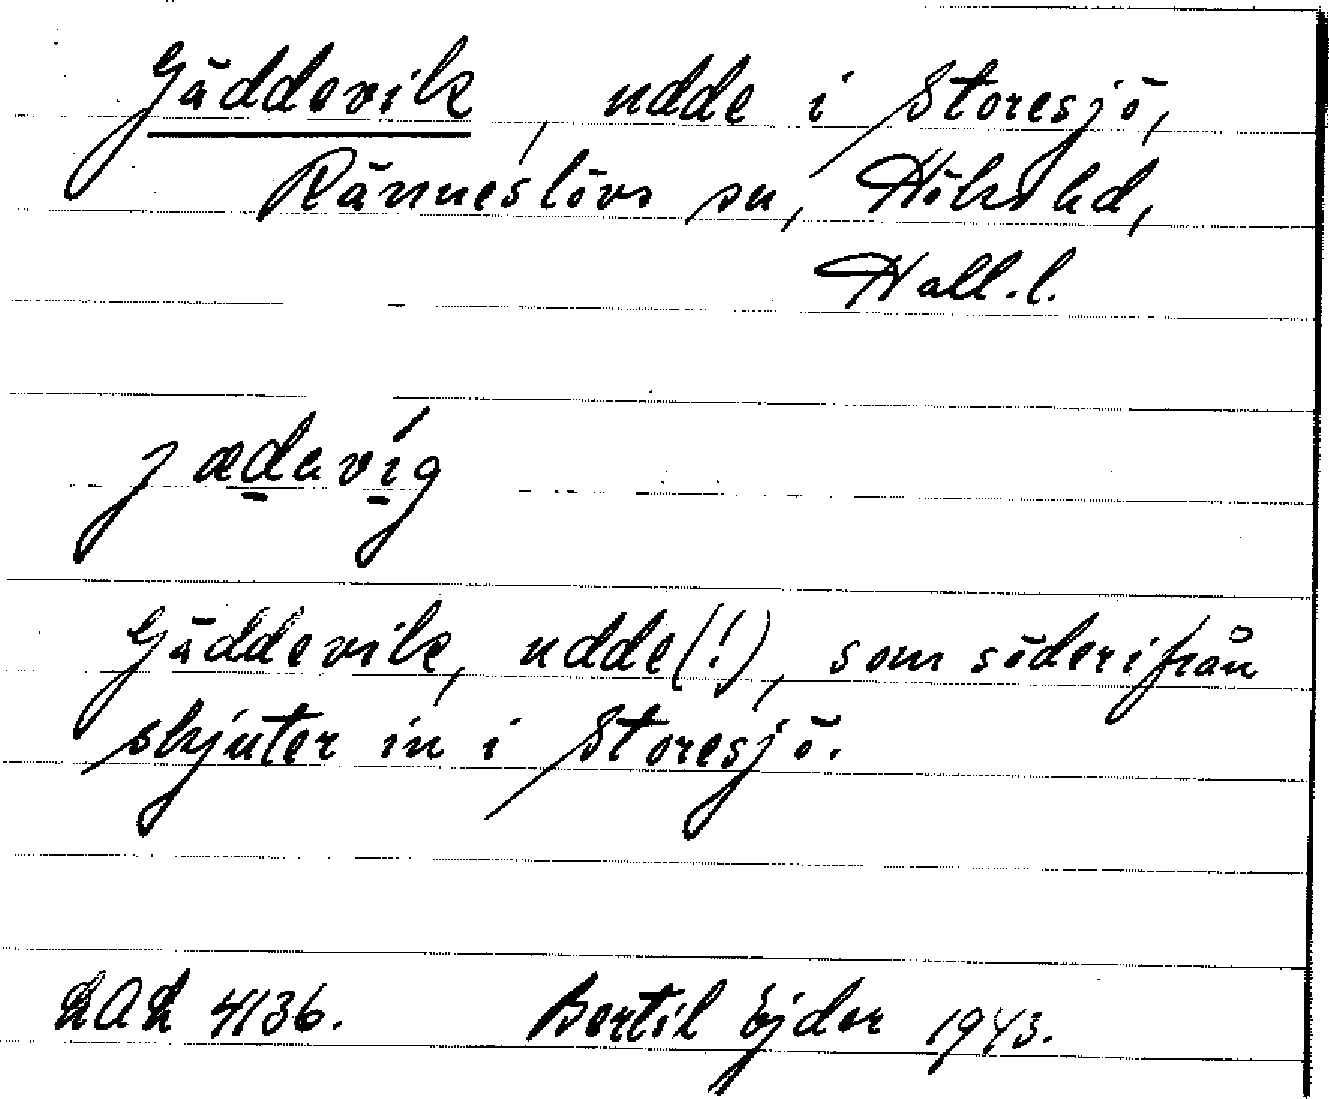 Gäddevik, udde i Storesjö,
Ränneslövs sn, Höks hd,
Hall.l.
jædavíg
Gäddevik, udde(!), som söderifrån
skjuter in i Storesjö.
LAL 4136. Bertil Ejder 1943.